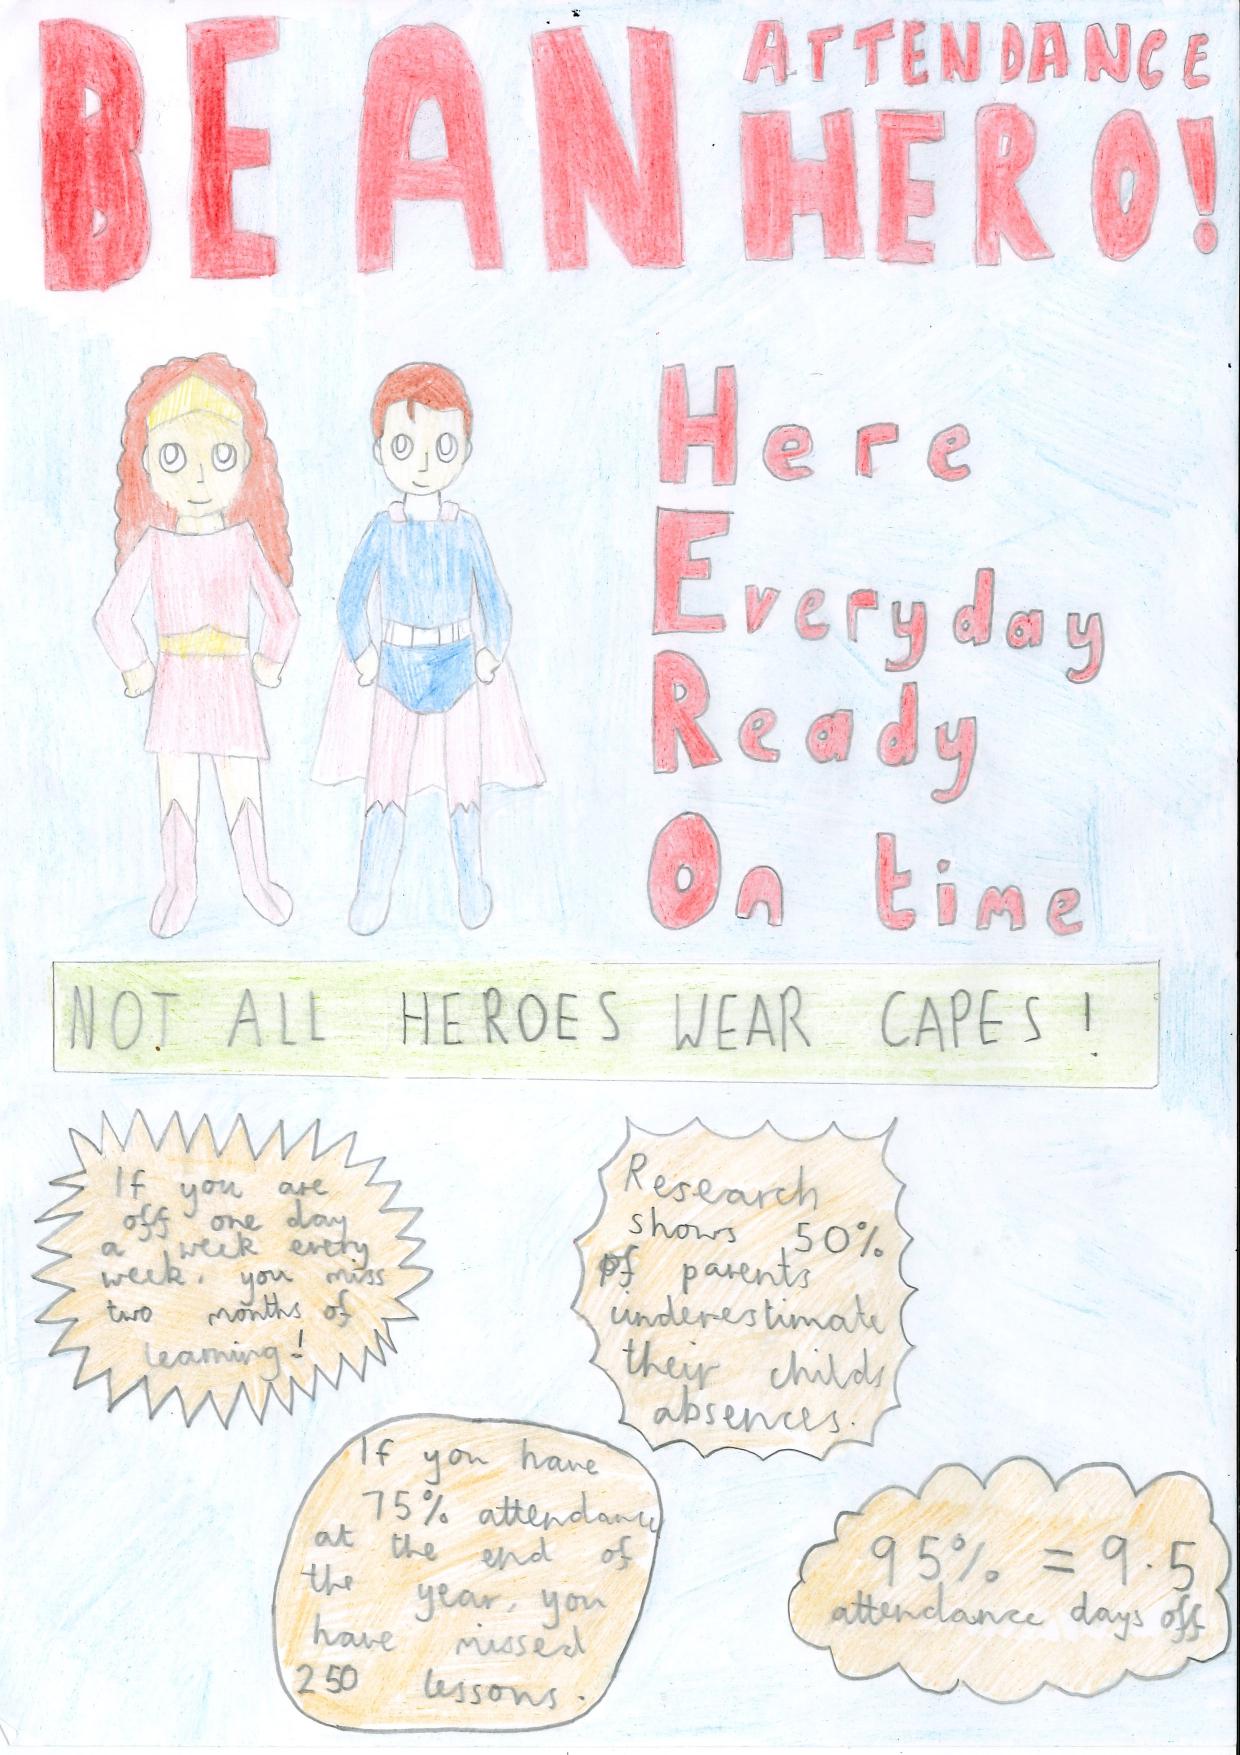 BE AN ATTENDANCE
HERO!
Here
Everyday
Ready
On time
NOT ALL HEROES WEAR CAPES!
If you are
off one day
a week every
week, you miss
two months of
learning!
Research
shows 50%
of parents
underestimate
their childs
absences.
If you have
75% attendance
at the end of
the year, you
have missed
250 lessons.
95% = 9.5
attendance days off